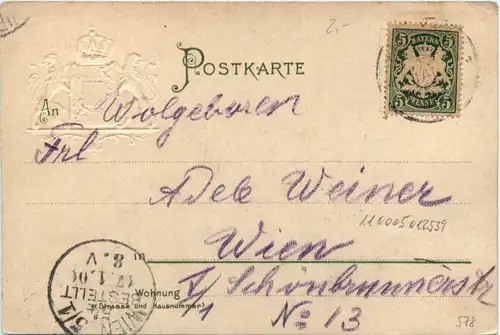 2.-
POSTKARTE
BAYERN
5 5
5 PFENNIG 5
An Wolgeboren
Frl
Adele Weiner
1110005012539
in Wien
Wohnung
(Strasse und Hausnummer)
V/1 Schönbrunnerstr
No 13
WIEN 5/1
BESTELLT
8.V
518